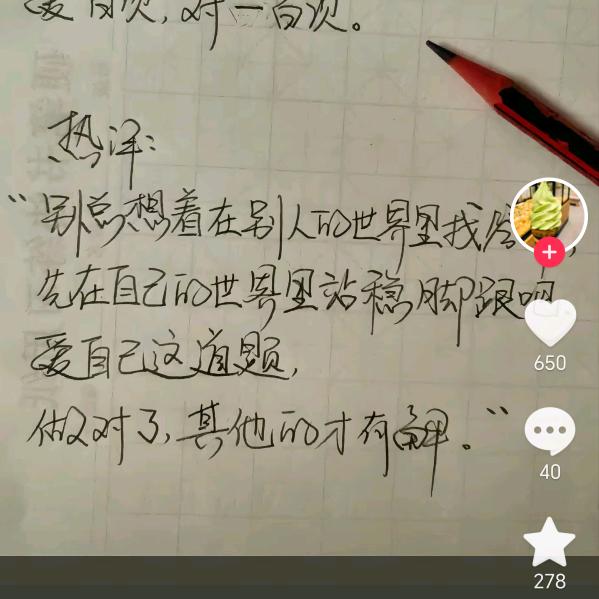 爱自己,对一百次。
热评:
“别总想着在别人的世界里找
先在自己的世界里站稳脚跟吧
爱自己这道题,
做对了,其他的才有解。”
650
40
278